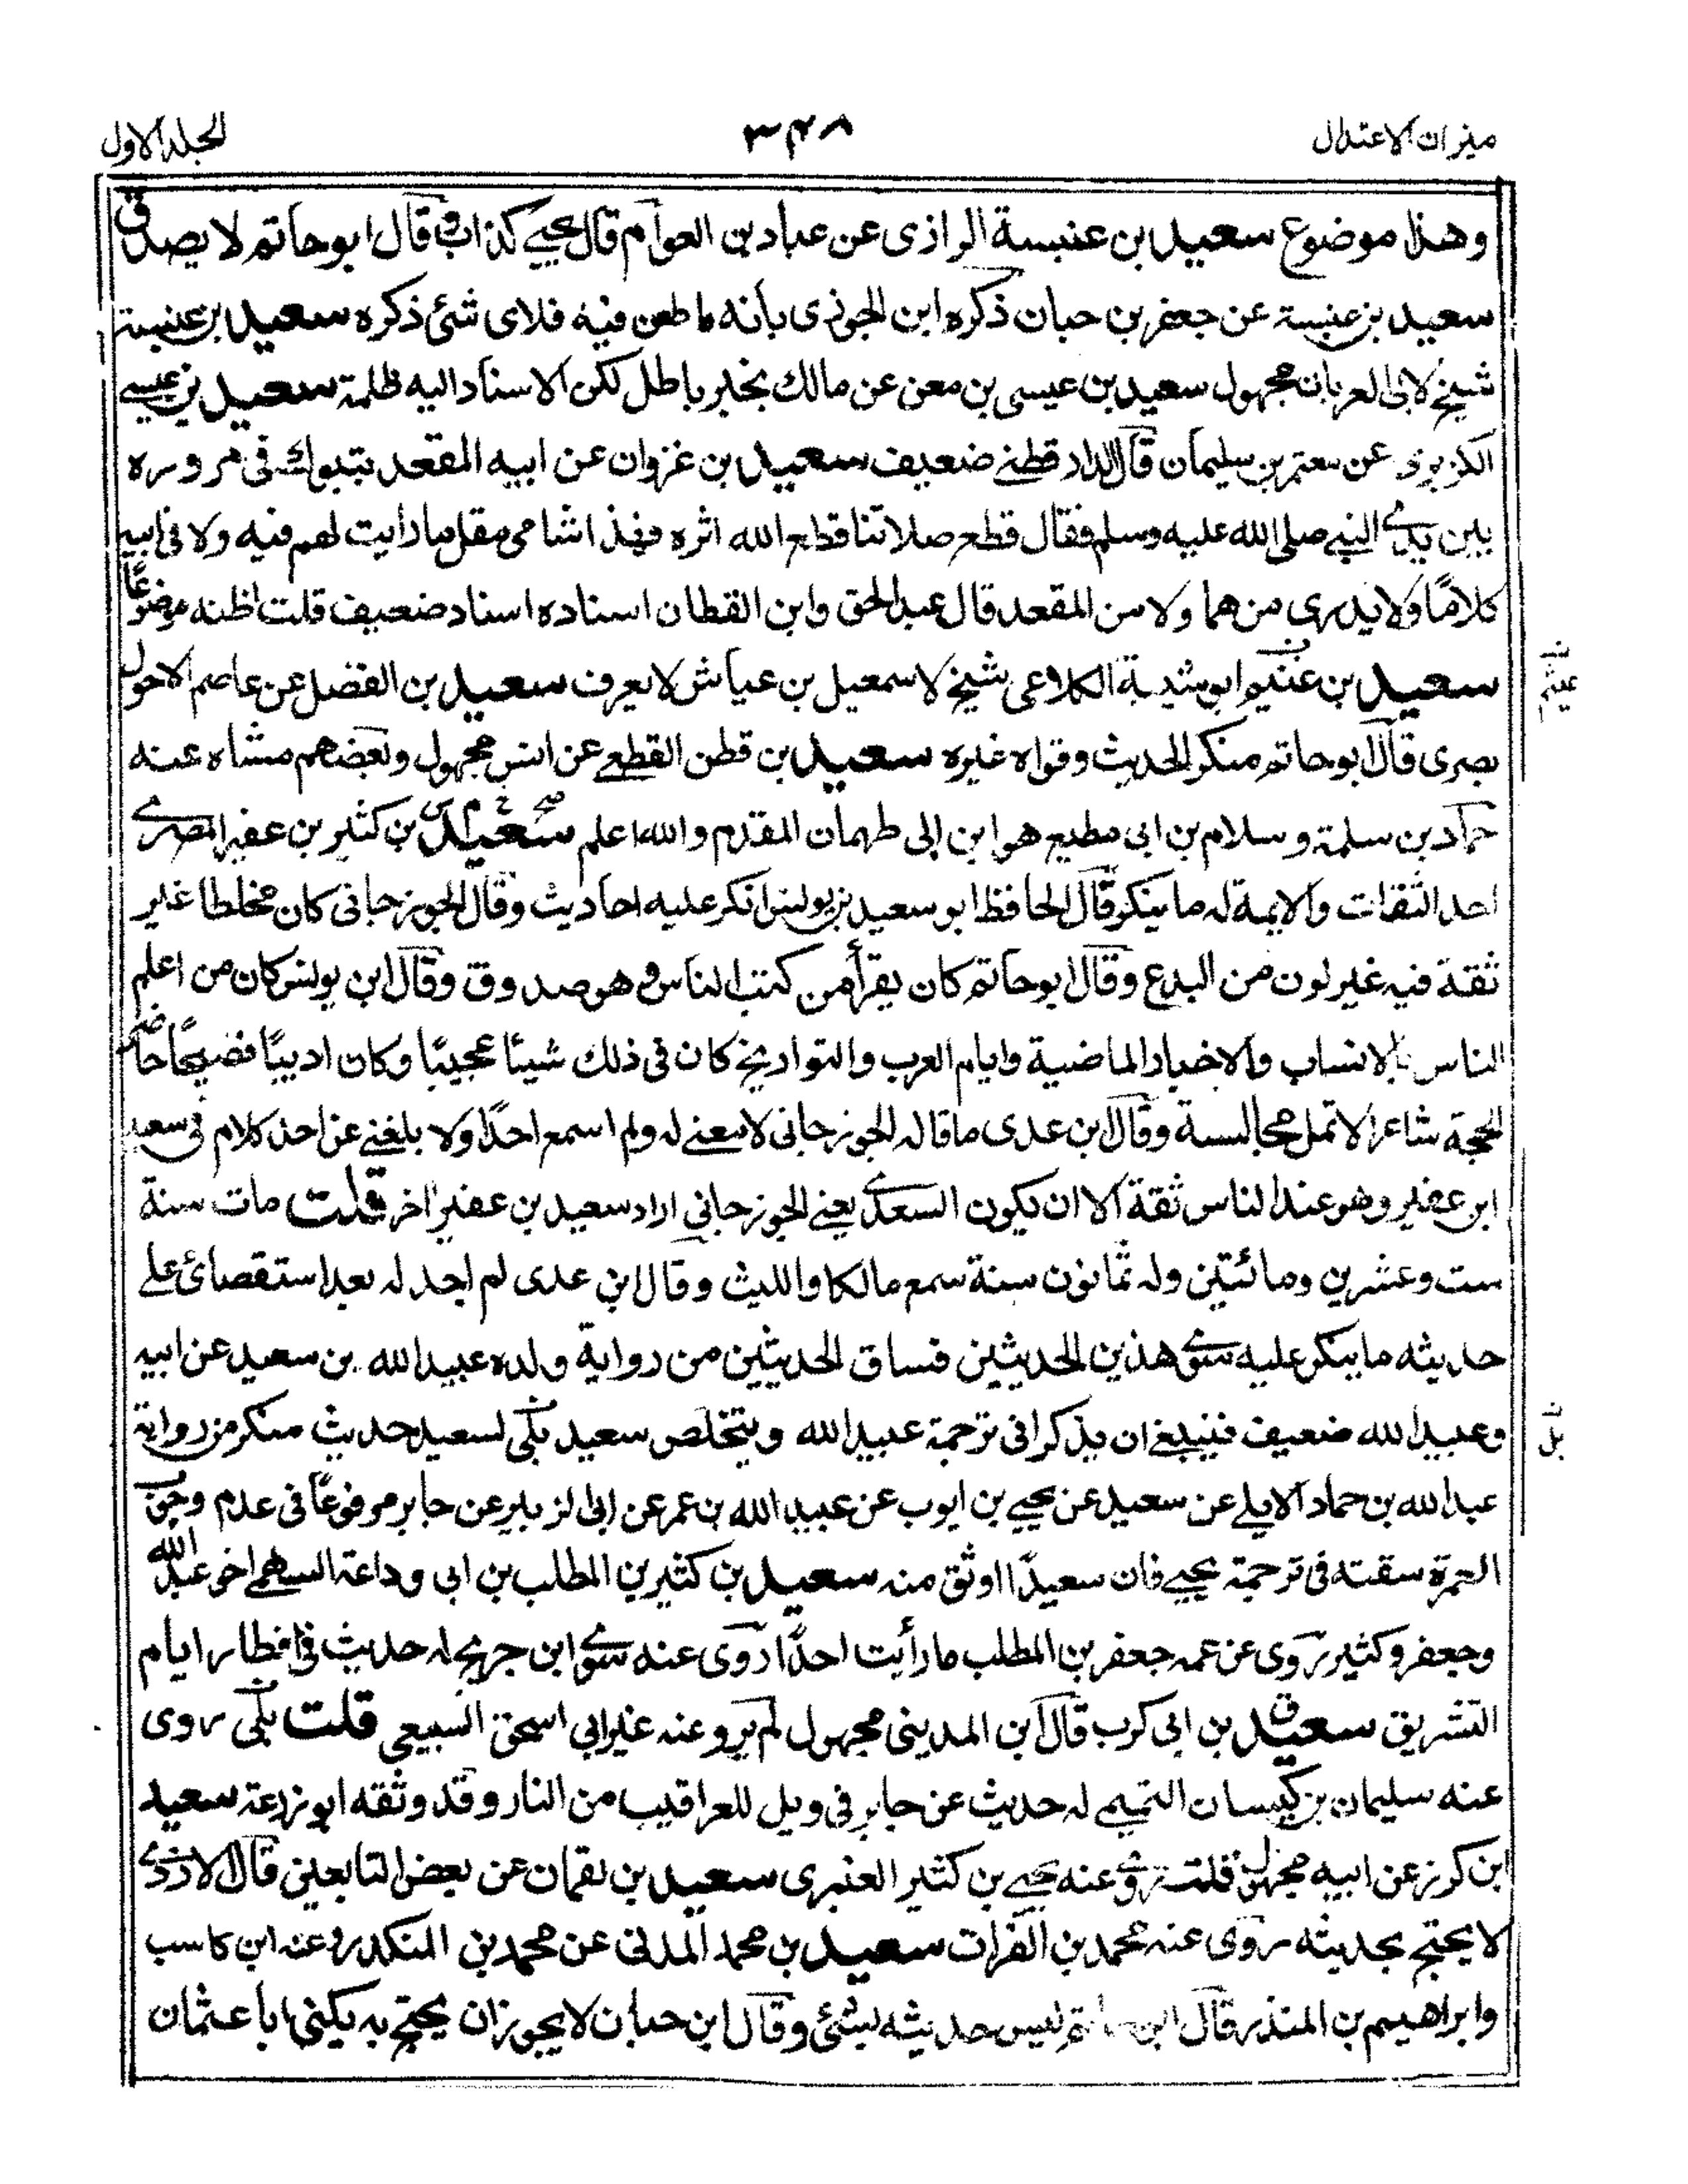 ميزان الاعتدال
٣٢٨
المجلد الاول
وهذا موضوع سعيد بن عنبسة الرازى عن عباد بن العوام قال يحيى كذاب وقال ابو حاتم لا يصدق
سعيد بن عنبسة عن جعفر بن حبان ذكره ابن الجوزى بانه ما طعن فيه فلاى شئ ذكره سعيد بن عنبسة
شيخ لابى العريان مجهول سعيد بن عيسى بن معن عن مالك بخبر باطل لكن الاسناد اليه ظلمة سعيد بن عيسى
الكزبرى عن معتمر بن سليمان قال الدارقطنى ضعيف سعيد بن غزوان عن ابيه المقعد بتبوك فى مروره
بين يدى النبى صلى الله عليه وسلم فقال قطع صلاتنا قطع الله اثره فهذا شامى مقل ما رايت لهم فيه ولا فى ابيه
كلاما ولا يدرى من هما ولا من المقعد قال عبد الحق وابن القطان اسناده اسناد ضعيف قلت اظنه موضوعا
سعيد بن عثيم ابو شيبة الكلاعى شيخ لاسمعيل بن عياش لا يعرف سعيد بن الفضل عن عاصم الاحول
بصرى قال ابو حاتم منكر الحديث وقواه غيره سعيد بن قطن القطعى عن انس مجهول وبعضهم مشاه عنه
حماد بن سلمة وسلام بن ابى مطيع هو ابن ابى طهمان المقدم والله اعلم سعيد بن كثير بن عفير المصرى
احد الثقات والايمة له ما ينكر قال الحافظ ابو سعيد بن يونس انكر عليه احاديث وقال الجوزجانى كان مخلطا غير
ثقة فيه غير لون من البدع وقال ابو حاتم كان يقرأ من كتب الناس وهو صدوق وقال ابن يونس كان من اعلم
الناس بالانساب والاخبار الماضية وايام العرب والتواريخ كان فى ذلك شيئا عجيبا وكان اديبا فصيحا حاضر
الحجة شاعرا لا تمل مجالسة وقال ابن عدى ما قاله الجوزجانى لا معنى له ولم اسمع احدا ولا بلغنى عن احد كلام فى سعيد
ابن عفير وهو عند الناس ثقة الا ان يكون السعدى يعنى الجوزجانى اراد سعيد بن عفير اخر قلت مات سنة
ست وعشرين ومائتين وله ثمانون سنة سمع مالكا والليث وقال ابن عدى لم اجد له بعد استقصائى على
حديثه ما ينكر عليه سوى هذين الحديثين فساق الحديثين من رواية ولده عبيد الله بن سعيد عن ابيه
وعبيد الله ضعيف فينبغى ان يذكرا فى ترجمة عبيد الله ويتخلص سعيد بلى لسعيد حديث منكر من رواية
عبد الله بن حماد الايلى عن سعيد عن يحيى بن ايوب عن عبيد الله بن عمر عن ابى الزبير عن جابر مرفوعا فى عدم وجوب
العمرة سقته فى ترجمة يحيى فان سعيدا اوثق منه سعيد بن كثير بن المطلب بن ابى وداعة السهمى اخو عبد الله
وجعفر وكثير روى عن عمه جعفر بن المطلب ما رأيت احدا روى عنه سوى ابن جريج له حديث فى افطار ايام
التشريق سعيد ق بن ابى كرب قال ابن المدينى مجهول لم يرو عنه غير ابى اسحق السبيعى قلت بلى روى
عنه سليمان بن كيسان التميمى له حديث عن جابر فى ويل للعراقيب من النار وقد وثقه ابو زرعة سعيد
ابن كرز عن ابيه مجهول قلت روى عنه يحيى بن كثير العنبرى سعيد بن لقمان عن بعض التابعين قال الازدى
لا يحتج بحديثه روى عنه محمد بن الفرات سعيد بن محمد المدنى عن محمد بن المنكدر وعنه ابن كاسب
وابراهيم بن المنذر قال ابن حاتم ليس حديثه بشئ وقال ابن حبان لا يجوز ان يحتج به يكنى ابا عثمان
ن
عثيم
ن
بل